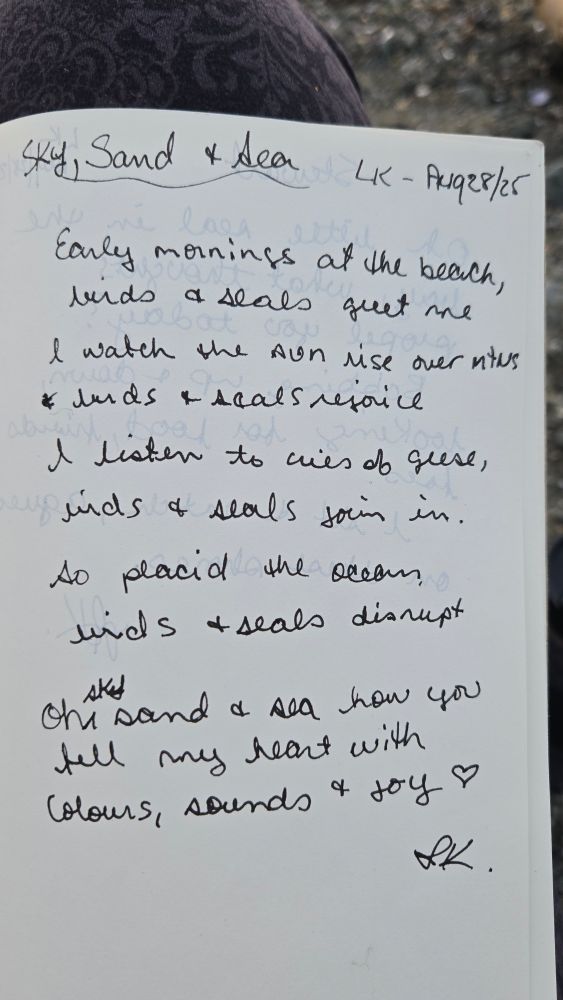 Sky, Sand & Sea
LK - Aug 28/25
Early mornings at the beach,
birds & seals greet me
I watch the sun rise over mtns
& birds & seals rejoice
I listen to cries of geese,
birds & seals join in.
So placid the ocean,
birds & seals disrupt
Oh, sky sand & sea how you
fell my heart with
Colours, sounds & joy ♡
LK.